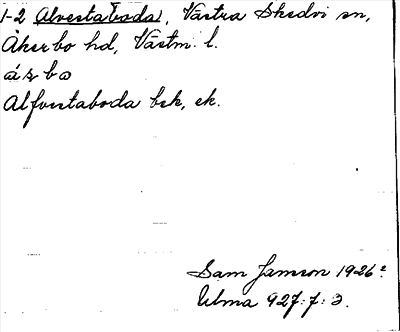 1-2 Alvestaboda, Västra Skedvi sn,
Åkerbo hd, Västm. l.
Alfvestaboda bek, ek.
Sam Jansson 1926
Ulma 927:7:3.